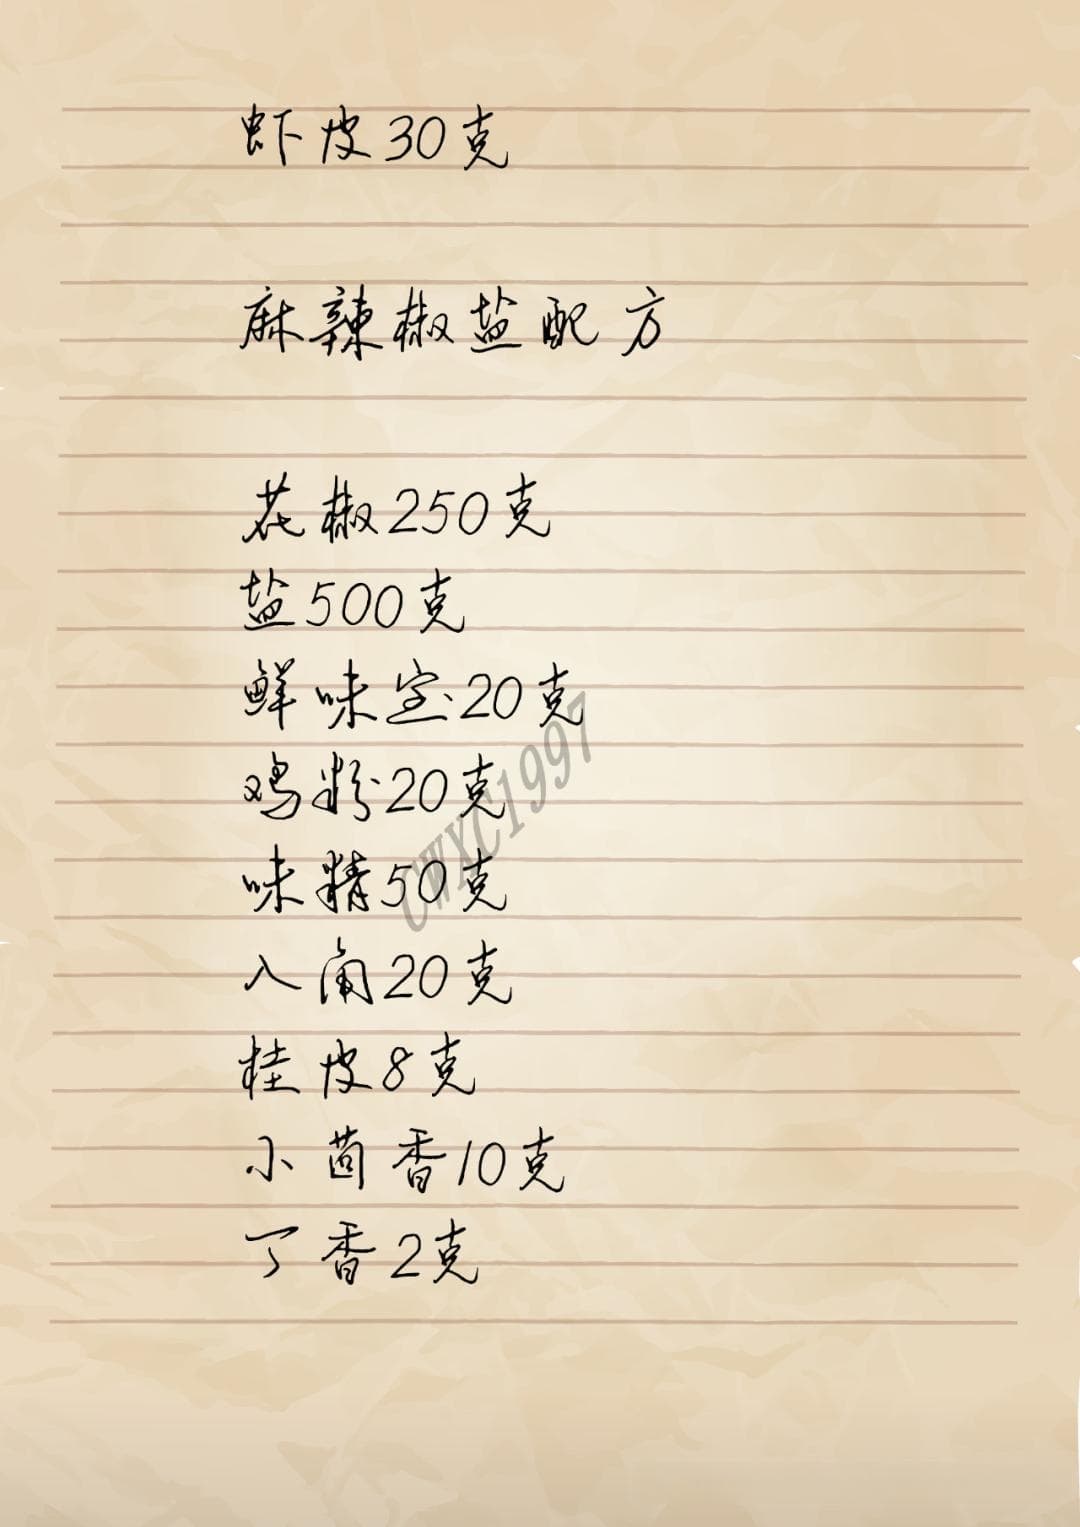 虾皮30克
麻辣椒盐配方
花椒250克
盐500克
鲜味宝20克
鸡粉20克
味精50克
八角20克
桂皮8克
小茴香10克
丁香2克
CWXC1997